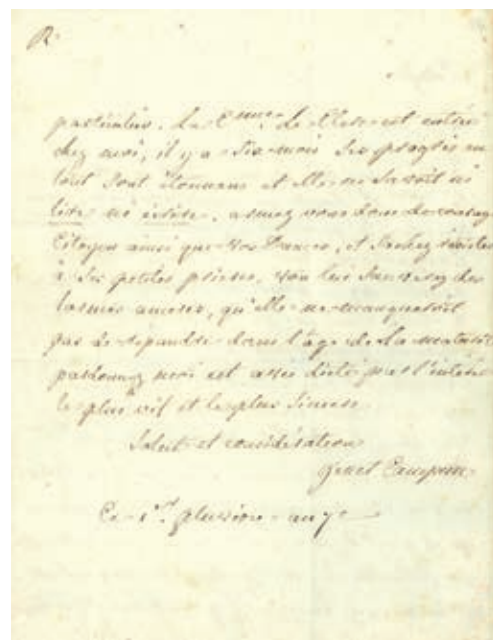 R.
particulier. La C.enne De est entrée
chez moi, il y a six mois Ses progrès en
tout sont étonnans et elle ne savoit ni
lire ni écrire. armez vous donc de courage
Citoyen ainsi que vos Dames, et Sachez résister
à Ses petites prières, vous lui Sauverez des
larmes ameres, qu'elle ne manqueroit
pas de répandre dans l'âge de la maturité
pardonnez moi cet avis dicté par l'intérêt
le plus vif et le plus Sincere
Salut et considération
Genet Campan
Ce 1.er pluviôse an 7e